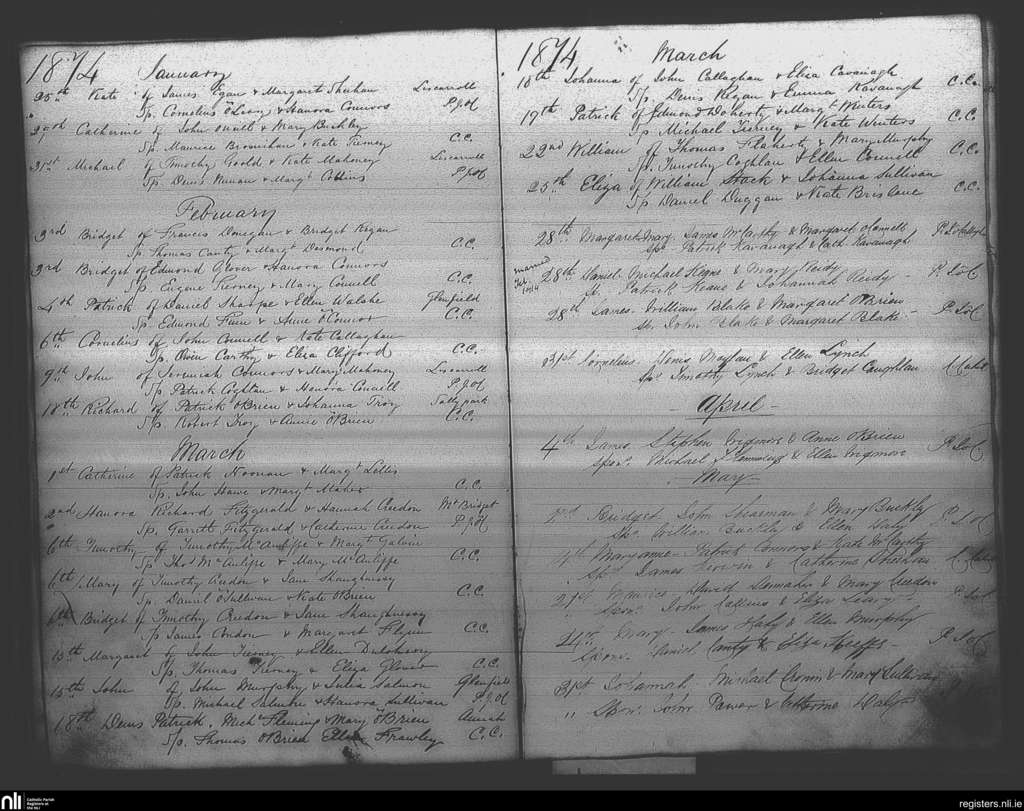 1874 January
25th Kate of James Egan & Margaret Sheehan Liscarroll
" Sp. Cornelius O'Leary & Hanora Connors P.J.O'C
Catherine of John & Mary Buckley
Sp. Maurice Brosnihan & Kate Tierney C.C.
31st Michael of Timothy Goold & Kate Mahoney Liscarroll
Sp. Denis Nunan & Margt Collins P.J.O'C
February
3rd Bridget of Francis Donegan & Bridget Regan
Sp. Thomas Canty & Margt Desmond C.C.
3rd Bridget of Edmond Glover & Hanora Connors
Sp. Eugene Tierney & Mary Connell C.C.
4th Patrick of Daniel Sharpe & Ellen Walshe Glenfield
Sp. Edmond & Anne O'Connor C.C.
6th Cornelius of John Connell & Kate Callaghan
Sp. Owen Carthy & Eliza Clifford C.C.
9th John of Jeremiah Connors & Mary Mahoney Liscarroll
Sp. Patrick Coghlan & Hanora Connell P.J.O'C
18th Richard of Patrick O'Brien & Johanna Troy Sallypark
Sp. Robert Troy & Annie O'Brien C.C.
March
1st Catherine of Patrick Noonan & Margt
Sp. John & Margt Maher C.C.
2nd Hanora Richard Fitzgerald & Hannah Creedon Mt Bridget
" Sp. Garrett Fitzgerald & Catherine Creedon P.J.O'C
6th Timothy of Timothy McAuliffe & Margt Galvin
Sp. Thos McAuliffe & Mary McAuliffe C.C.
6th Mary of Timothy Creedon & Jane Shaughnessy
Sp. Daniel O'Sullivan & Kate O'Brien C.C.
6th Bridget of Timothy Creedon & Jane Shaughnessy
Sp James Condon & Margaret Flynn C.C.
15th Margaret of John Tierney & Ellen
Sp. Thomas Tierney & Eliza Glover C.C.
15th John of John Murphy & Julia Salmon Glenfield
Sp. Michael & Hanora Sullivan P.J.O'C
18th Denis Patrick. Michl Fleming & Mary O'Brien Annah
Sp. Thomas O'Brien Ellen Frawley C.C.
1874 March
18th Johanna of John Callaghan & Eliza Cavanagh
Sp. Denis Regan & Emma Kavanagh C.C.
19th Patrick of Edmond Doherty & Margt Winters
Sp Michael Tierney & Kate Winters C.C.
22nd William of Thomas Flaherty & Mary Murphy
Sp. Timothy Coghlan & Ellen Connell C.C.
25th Eliza of William Stack & Johanna Sullivan
Sp Daniel Duggan & Kate Brislane C.C.
28th Margaret Mary James McCarthy & Margaret O'Connell
Sp. Patrick Kavanagh & Cath Kavanagh
married
28th Daniel Michael Keane & Mary Reidy P. J O'C
Sp. Patrick Keane & Johannah Reidy
28th James William Blake & Margaret O'Brien P. J O'C
Sp. John Blake & Margaret Blake
31st Cornelius Denis Moylan & Ellen Lynch
Spr Timothy Lynch & Bridget Coughlan
- April -
4th James Stephen Wigmore & Anne O'Brien P. J O'C
Spors Michael Flemming & Ellen Wigmore
- May -
Bridget John Shearman & Mary Buckley P. J. O'C
Sp. William Buckley & Ellen Daly
Maryanne Patrick Connors & Kate McCarthy
Spr James & Catherine Sheehan
Maurice David & Mary Creedon P. J O'C
Spon. John Collins & Eliza Leary
Mary James Daly & Ellen Murphy P. J O'C
Spon. Daniel Canty & Eliza Keeffe
31st Johannah Michael Cronin & Mary Sullivan
" Spon. John Power & Catherine Daly
nli
Catholic Parish
Registers at
the NLI
registers.nli.ie